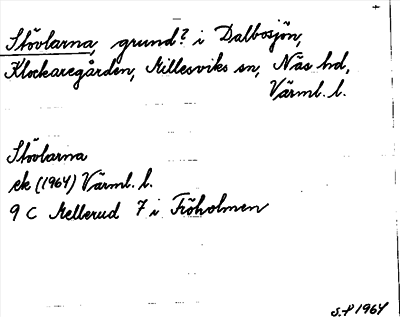 Stövlarna, grund? i Dalbosjön,
Klockaregården, Millesviks sn, Näs hd,
Värml. l.
Stövlarna
ek (1964) Värml. l.
9 C Mellerud 7 i Fröholmen
S.F 1964